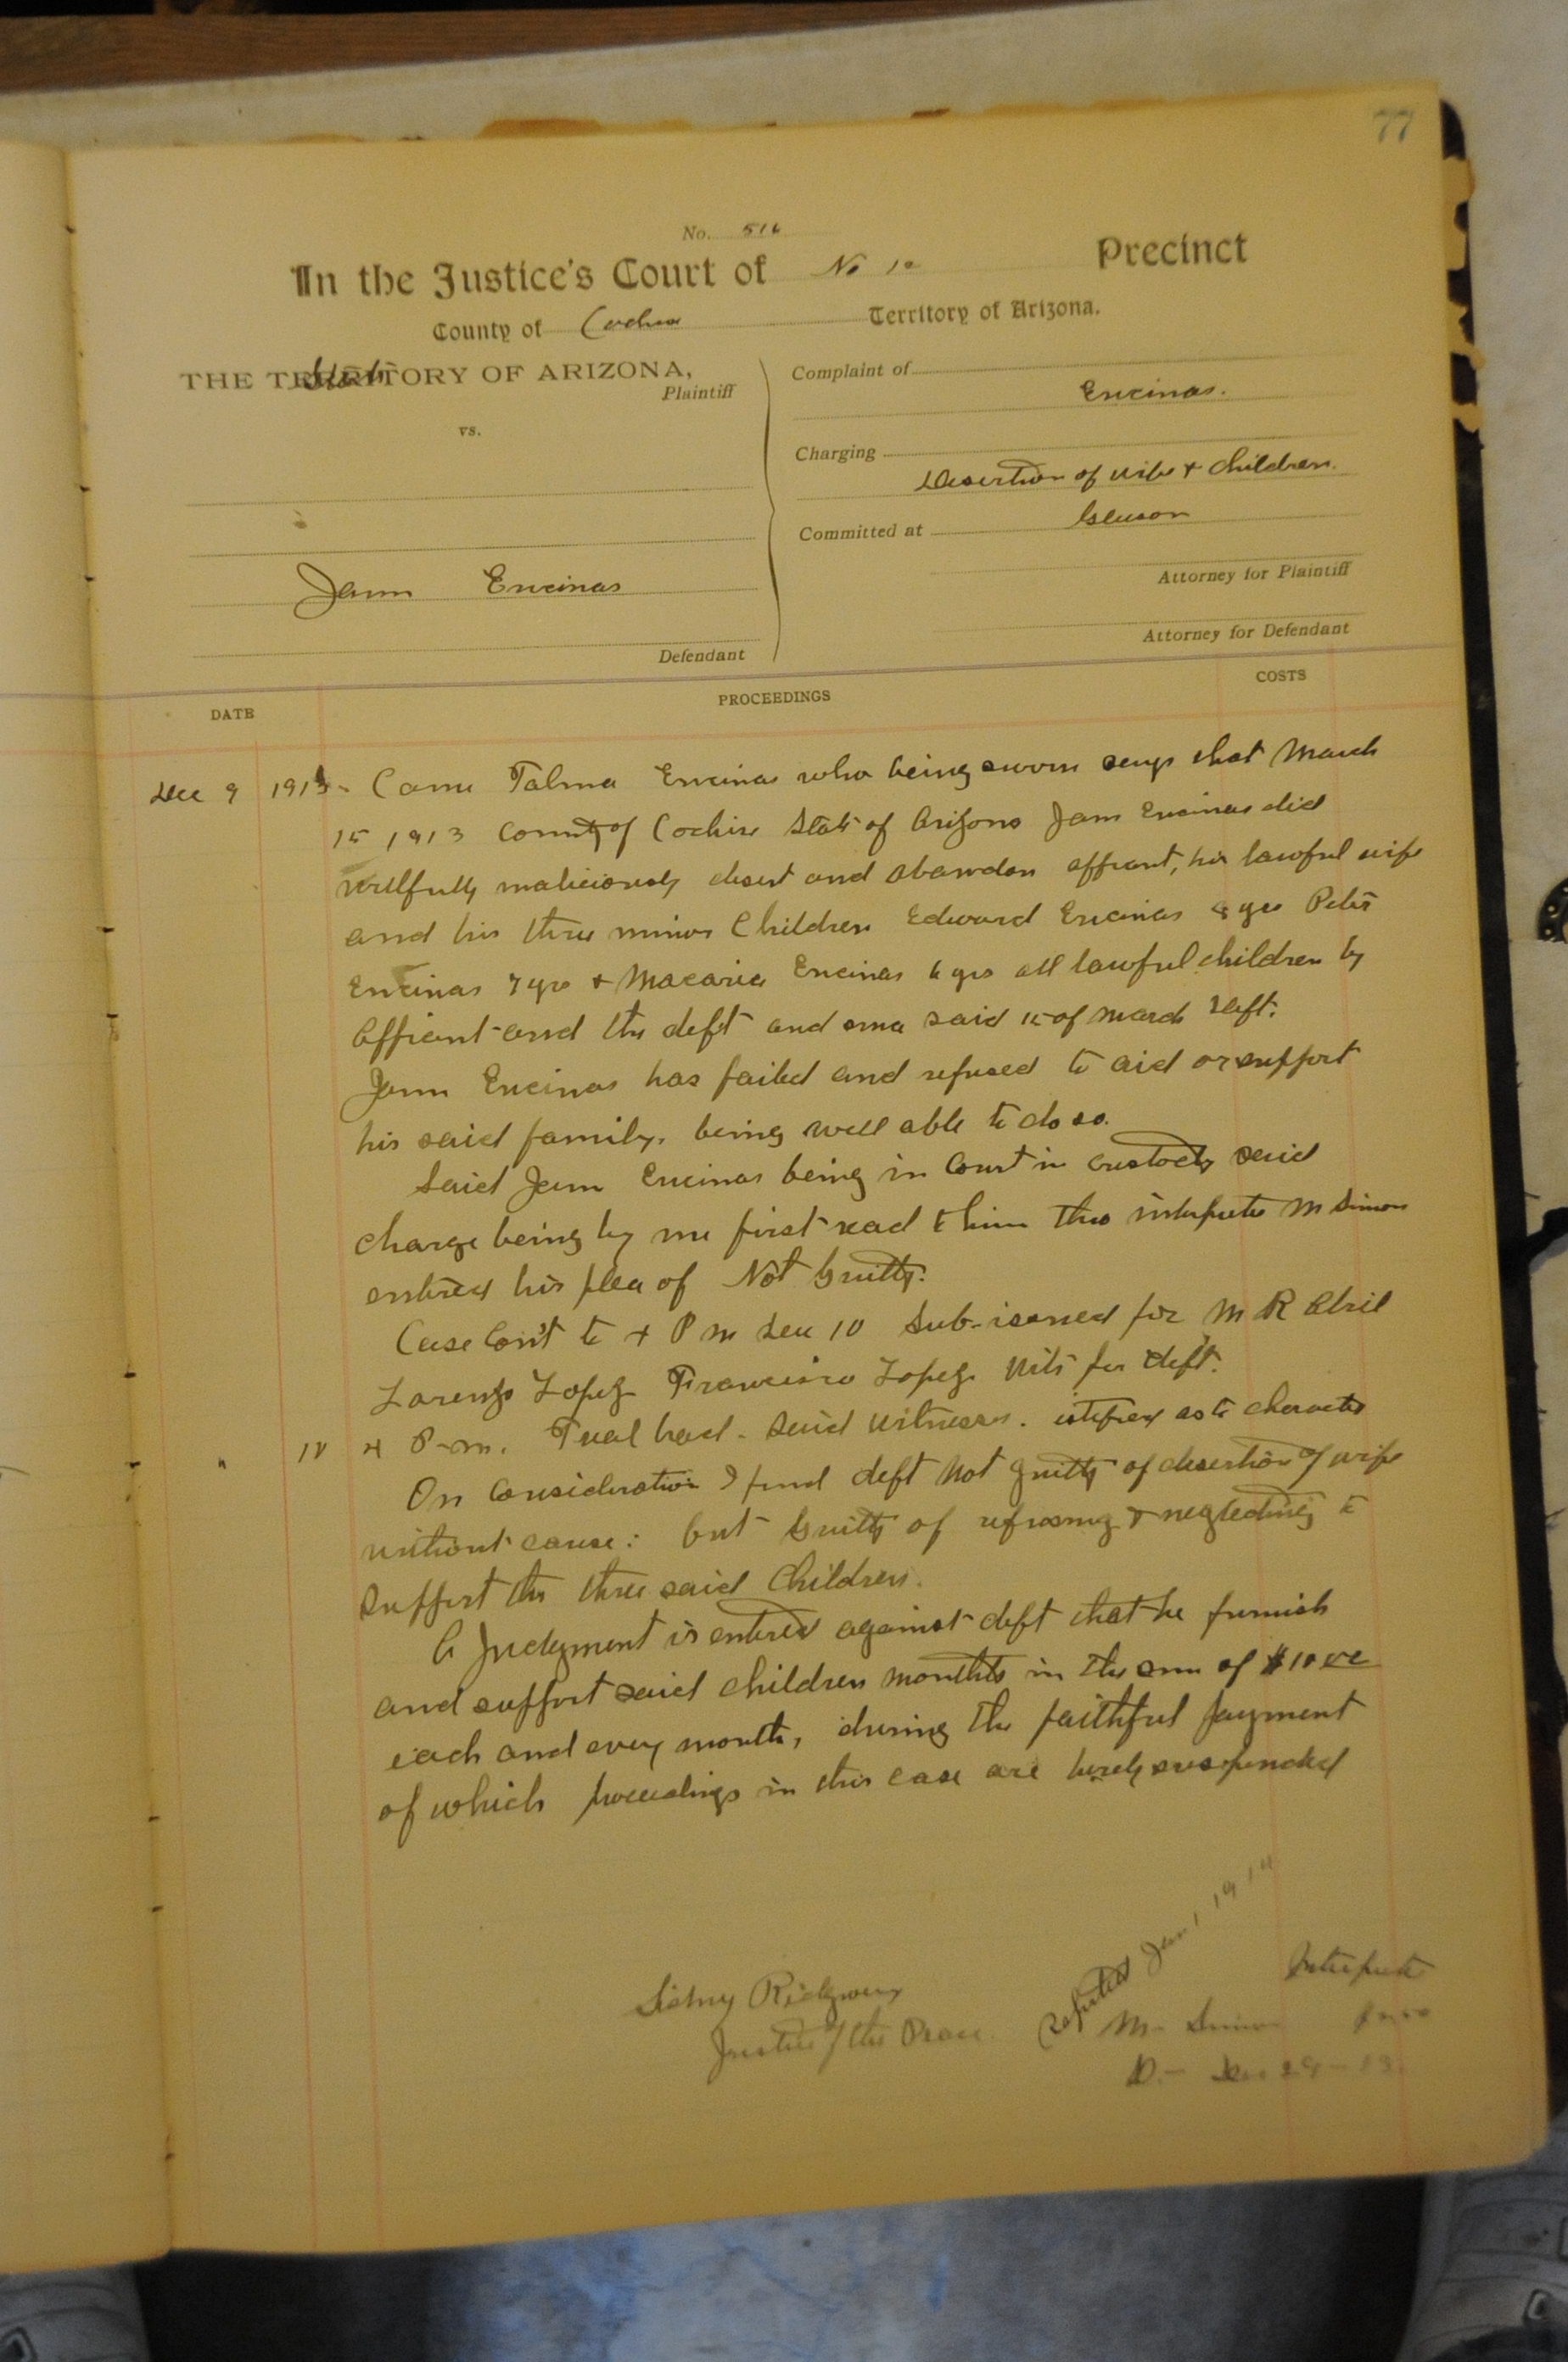 77
No. 516
In the Justice's Court of No 10 Precinct
County of Cochise Territory of Arizona.
THE TERRITORY OF ARIZONA,
State
Plaintiff
vs.
Juan Encinas
Defendant
Complaint of
Encinas.
Charging
Desertion of wife & Children.
Committed at Gleason
Attorney for Plaintiff
Attorney for Defendant
DATE PROCEEDINGS COSTS
Dec 9 1913 - Came Palma Encinas who being sworn says that March
15 1913 County of Cochise State of Arizona Juan Encinas did
willfully maliciously desert and abandon affiant, his lawful wife
and his three minor Children Edward Encinas yrs Peter
Encinas 7 yrs & Macaria Encinas 6 yrs all lawful children by
affiant and the deft and since said 15 of March deft.
Juan Encinas has failed and refused to aid or support
his said family, being well able to do so.
Said Juan Encinas being in Court in custody said
charge being by me first read to him thro interpreter M Simon
entered his plea of Not Guilty.
Case Con't to 4 P m Dec 10 Sub-issued for M R Abril
Lorenzo Lopez Francisco Lopez Wits for deft.
" 10 4 P-m. Trial had - Said witnesses. testified as to character
On Consideration I find deft Not guilty of desertion of wife
without cause: but Guilty of refusing & neglecting to
support the three said Children.
A Judgment is entered against deft that he furnish
and support said children monthly in the sum of $10 00
each and every month, during the faithful payment
of which proceedings in this case are hereby suspended
Sidney Ridgway
Justice of the Peace.
Reported Jan 1 1914
Interpreter
M. Simon
D. - Dec 29 - 13.